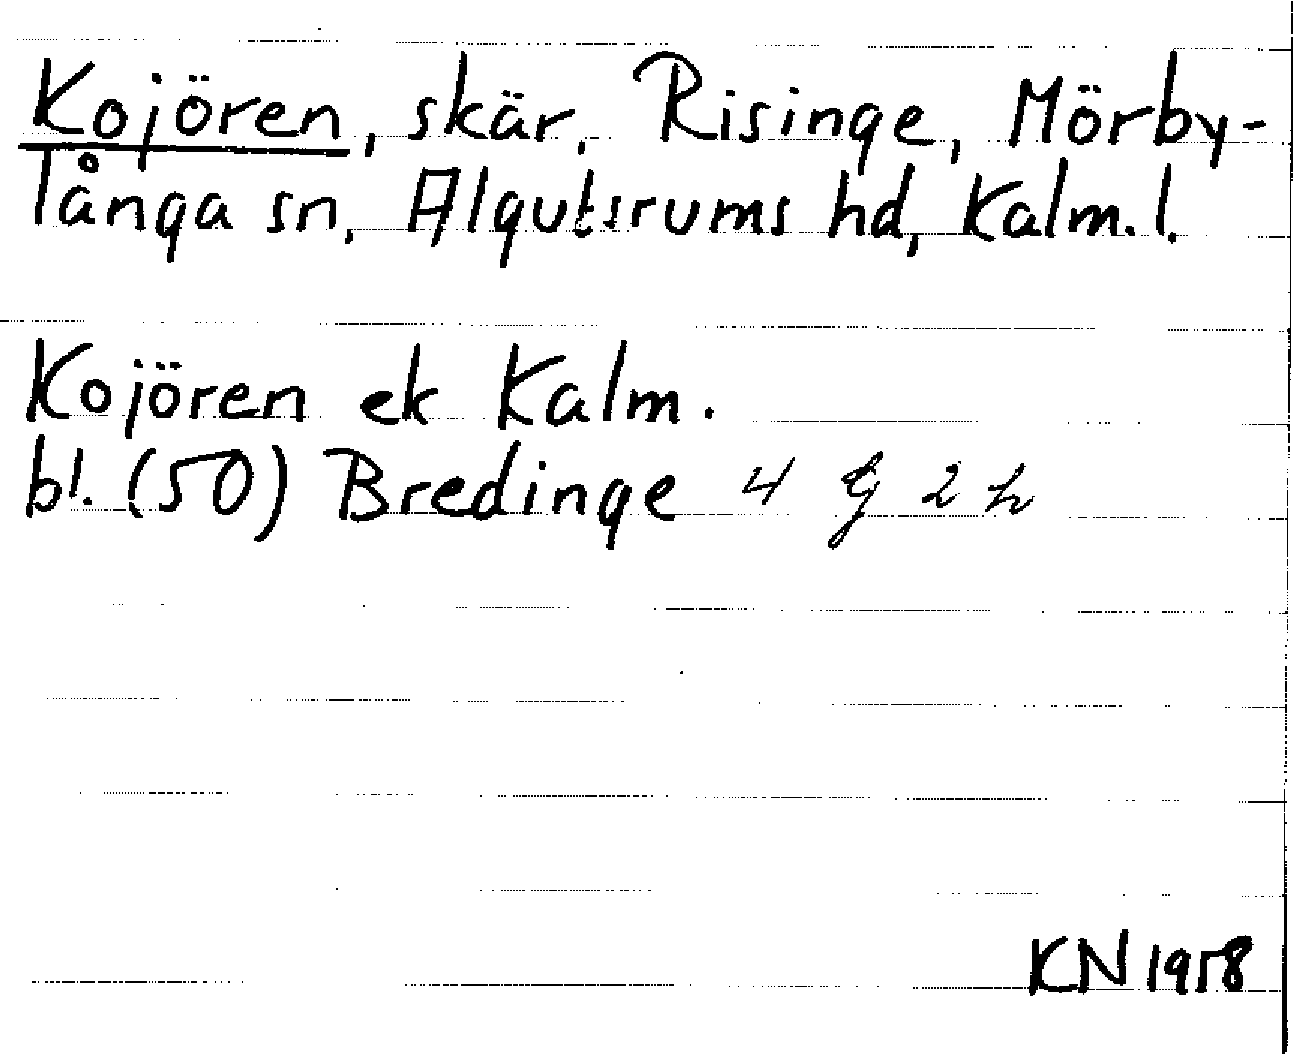 Kojören, skär, Risinge, Mörby-
långa sn, Algutsrums hd, Kalm. l.
Kojören ek Kalm.
bl. (50) Bredinge 4 G 2 h
KN 1958